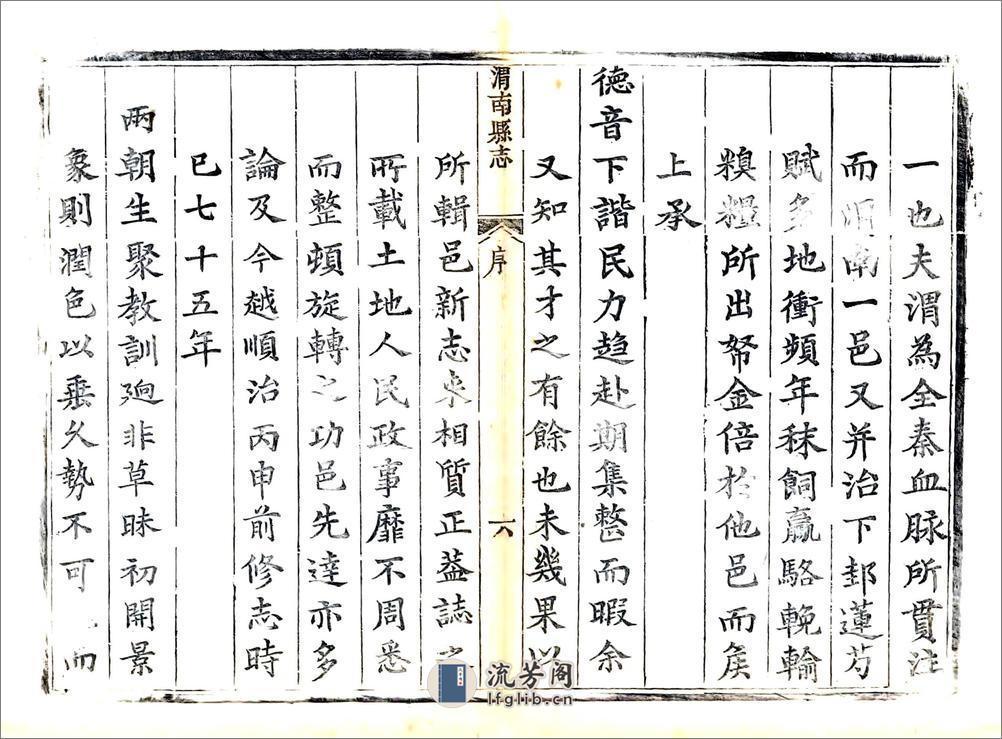 一也夫渭為全秦血脉所貫注
而渭南一邑又并治下邽蓮芍
賦多地衝頻年秣飼羸駱輓輪
糗糧所出帑金倍於他邑而矦
上承
德音下諧民力趋赴期集整而暇余
又知其才之有餘也未幾果以
渭南縣志
序
六
所輯邑新志来相質正葢誌之
所載土地人民政事靡不周悉
而整頓旋轉之功邑先達亦多
論及今越順治丙申前修志時
已七十五年
兩朝生聚教訓廻非草昧初開景
象則潤色以垂久勢不可而
流芳阁
lfglib.cn